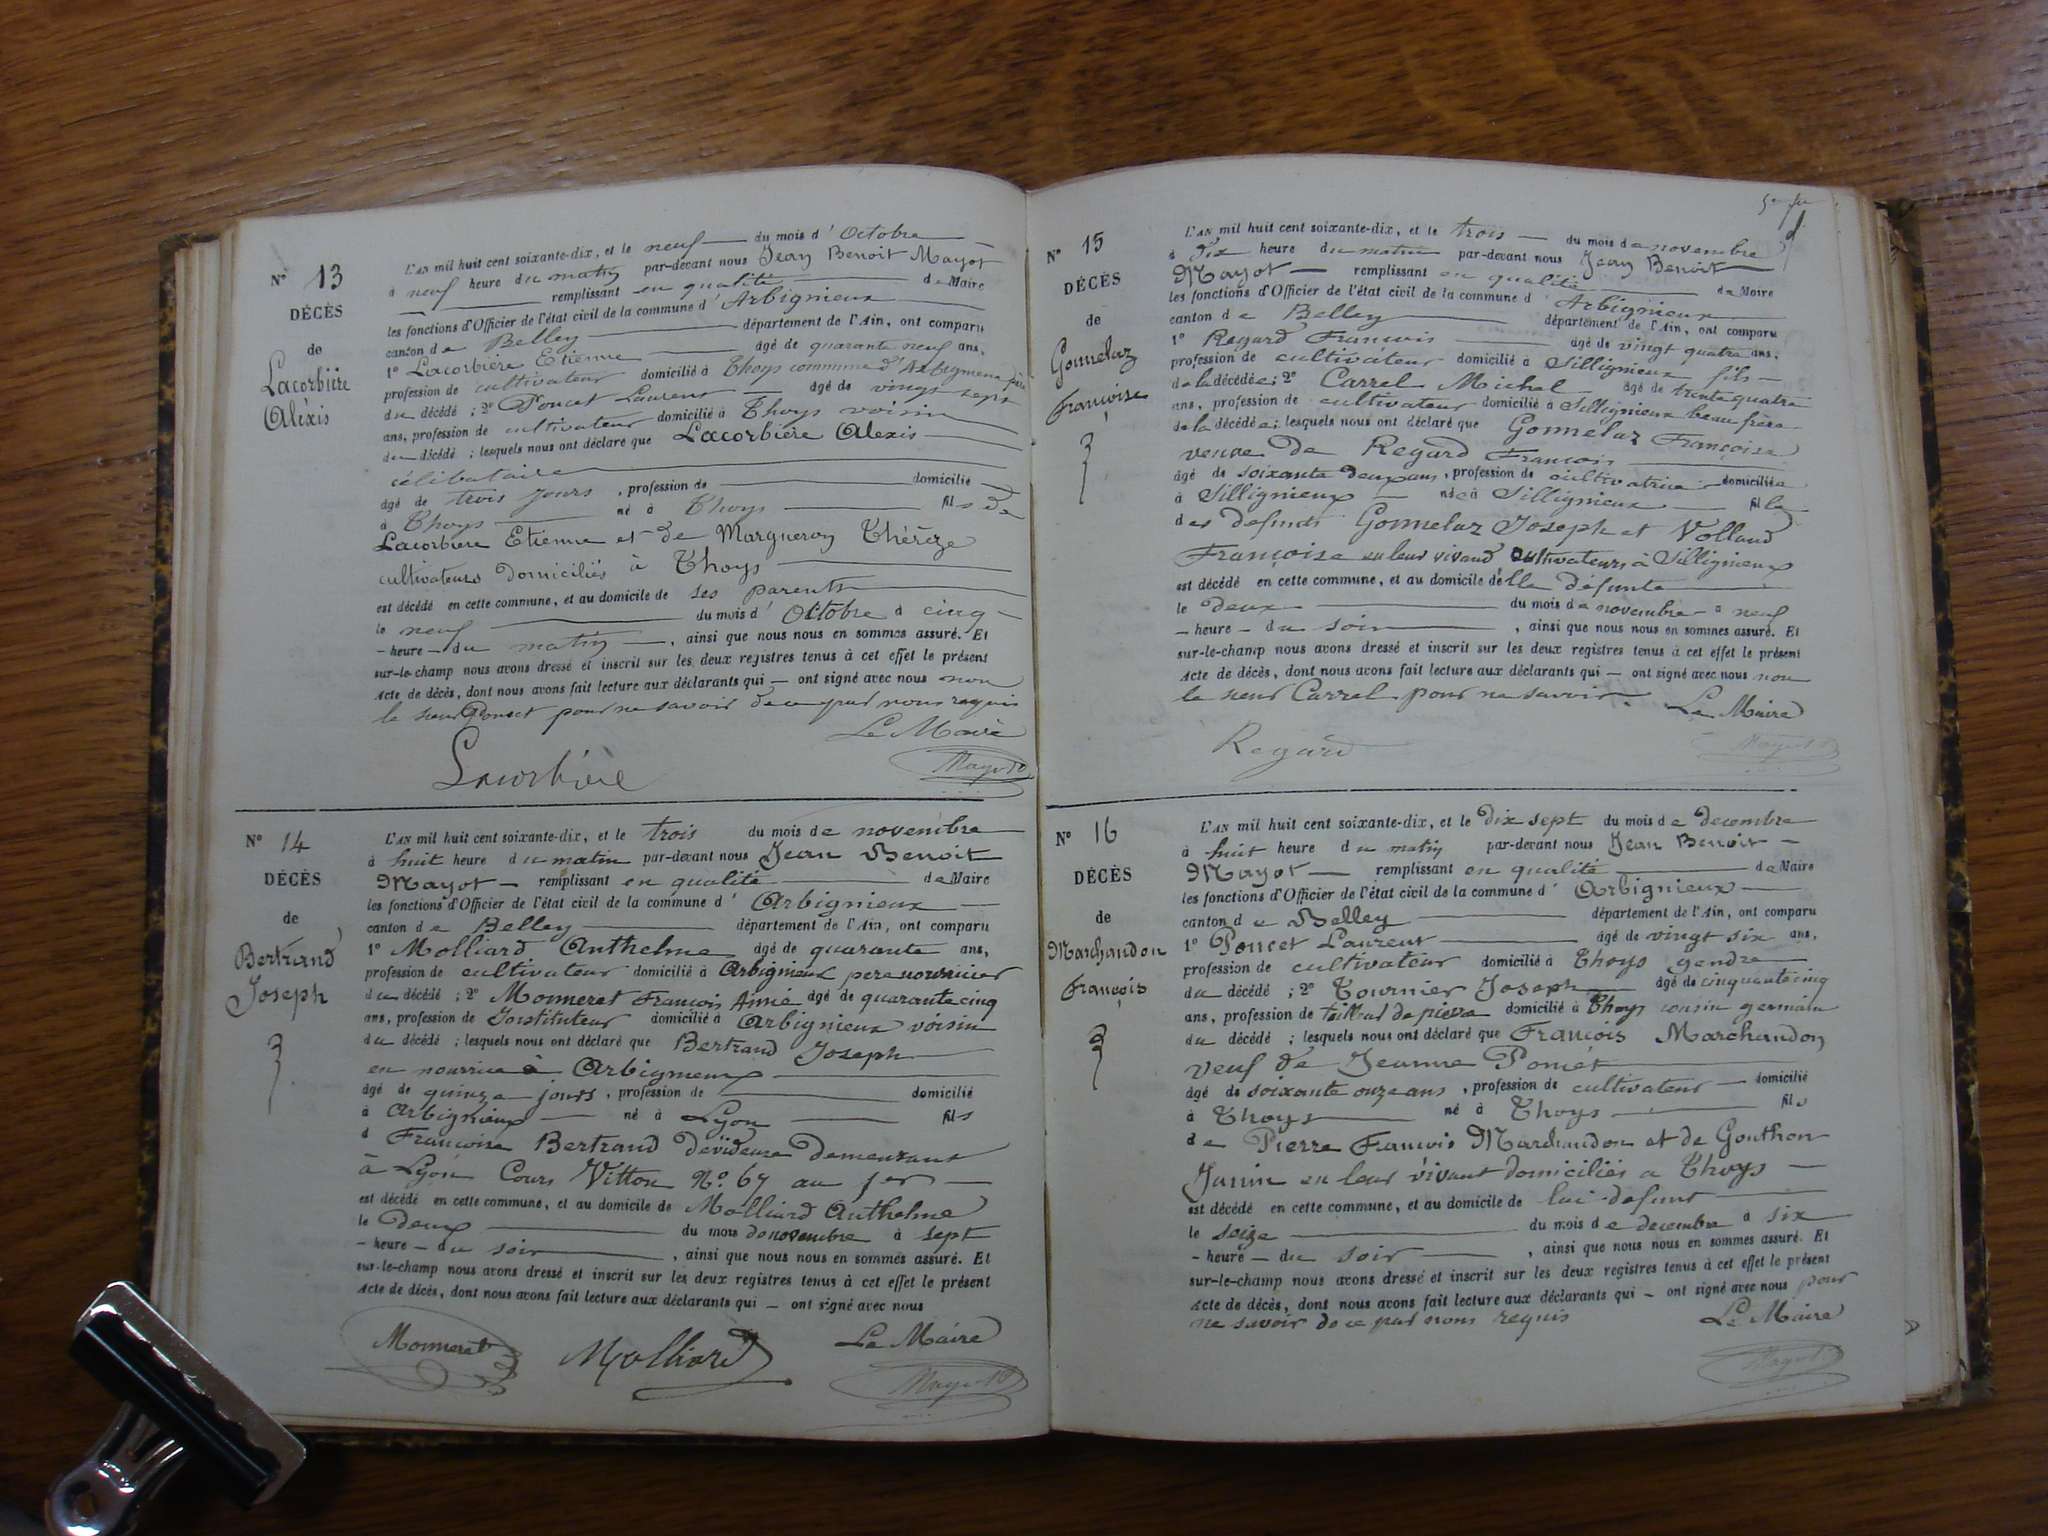 N° 13
DÉCÈS
de
Lacorbière
Aléxis
L'AN mil huit cent soixante-dix, et le neuf du mois d' Octobre
à neuf heure du matin par-devant nous Jean Benoit Mayot
remplissant en qualité de Maire
les fonctions d'Officier de l'état civil de la commune d' Arbignieux
canton de Belley département de l'Ain, ont comparu
1° Lacorbière Etienne âgé de quarante neuf ans,
profession de cultivateur domicilié à Thoys commune d'Arbignieux père
du décédé ; 2° Poncet Laurent âgé de vingt sept
ans, profession de cultivateur domicilié à Thoys voisin
du décédé ; lesquels nous ont déclaré que Lacorbière Alexis
célibataire
âgé de trois jours , profession de domicilié
à Thoys né à Thoys fils de
Lacorbière Etienne et de Margueron Thérèze
cultivateurs domiciliés à Thoys
est décédé en cette commune, et au domicile de ses parents
le neuf du mois d' Octobre à cinq
- heure - du matin , ainsi que nous nous en sommes assuré. Et
sur-le-champ nous avons dressé et inscrit sur les deux registres tenus à cet effet le présent
acte de décès, dont nous avons fait lecture aux déclarants qui — ont signé avec nous non
le sieur Poncet pour ne savoir de ce par nous requis
Le Maire
Lacorbière Mayot
N° 14
DÉCÈS
de
Bertrand
Joseph
L'AN mil huit cent soixante-dix, et le trois du mois de novembre
à huit heure du matin par-devant nous Jean Benoit
Mayot — remplissant en qualité de Maire
les fonctions d'Officier de l'état civil de la commune d' Arbignieux
canton de Belley département de l'Ain, ont comparu
1° Molliard Anthelme âgé de quarante ans,
profession de cultivateur domicilié à Arbignieux père nourricier
du décédé ; 2° Monneret François Aimé âgé de quarante cinq
ans, profession de Instituteur domicilié à Arbignieux voisin
du décédé ; lesquels nous ont déclaré que Bertrand Joseph
en nourrice à Arbignieux
âgé de quinze jours , profession de domicilié
à Arbignieux né à Lyon fils
d Françoise Bertrand dévideuse demeurant
à Lyon Cours Vitton N° 67 au 1er
est décédé en cette commune, et au domicile de Molliard Anthelme
le deux du mois de novembre à sept
- heure - du soir , ainsi que nous nous en sommes assuré. Et
sur-le-champ nous avons dressé et inscrit sur les deux registres tenus à cet effet le présent
acte de décès, dont nous avons fait lecture aux déclarants qui — ont signé avec nous
Monneret Molliard Le Maire
Mayot
N° 15
DÉCÈS
de
Gonnelaz
Françoise
L'AN mil huit cent soixante-dix, et le trois du mois de novembre
à dix heure du matin par-devant nous Jean Benoit
Mayot — remplissant en qualité de Maire
les fonctions d'Officier de l'état civil de la commune d' Arbignieux
canton de Belley département de l'Ain, ont comparu
1° Regard François âgé de vingt quatre ans,
profession de cultivateur domicilié à Sillignieux fils
de la décédée ; 2° Carrel Michel âgé de trente quatre
ans, profession de cultivateur domicilié à Sillignieux beau frère
de la décédée ; lesquels nous ont déclaré que Gonnelaz Françoise
veuve de Regard François
âgé de soixante deux ans , profession de cultivatrice domiciliée
à Sillignieux née à Sillignieux fille
des defunts Gonnelaz Joseph et Volland
Françoise en leur vivant cultivateurs à Sillignieux
est décédé en cette commune, et au domicile de lla défunte
le deux du mois de novembre à neuf
- heure - du soir , ainsi que nous nous en sommes assuré. Et
sur-le-champ nous avons dressé et inscrit sur les deux registres tenus à cet effet le présent
acte de décès, dont nous avons fait lecture aux déclarants qui — ont signé avec nous non
le sieur Carrel pour ne savoir. Le Maire
Regard Mayot
N° 16
DÉCÈS
de
Marchandon
François
L'AN mil huit cent soixante-dix, et le dix sept du mois de decembre
à huit heure du matin par-devant nous Jean Benoit
Mayot — remplissant en qualité de Maire
les fonctions d'Officier de l'état civil de la commune d' Arbignieux
canton de Belley département de l'Ain, ont comparu
1° Poncet Laurent âgé de vingt six ans,
profession de cultivateur domicilié à Thoys gendre
du décédé ; 2° Tournier Joseph âgé de cinquante cinq
ans, profession de tailleur de pierre domicilié à Thoys cousin germain
du décédé ; lesquels nous ont déclaré que François Marchandon
veuf de Jeanne Poncet
âgé de soixante onze ans , profession de cultivateur domicilié
à Thoys né à Thoys fils
de Pierre François Marchandon et de Gonthon
Janin en leur vivant domiciliés a Thoys
est décédé en cette commune, et au domicile de lui defunt
le seize du mois de decembre à six
- heure - du soir , ainsi que nous nous en sommes assuré. Et
sur-le-champ nous avons dressé et inscrit sur les deux registres tenus à cet effet le présent
acte de décès, dont nous avons fait lecture aux déclarants qui — ont signé avec nous pour
ne savoir de ce par nous requis Le Maire
Mayot